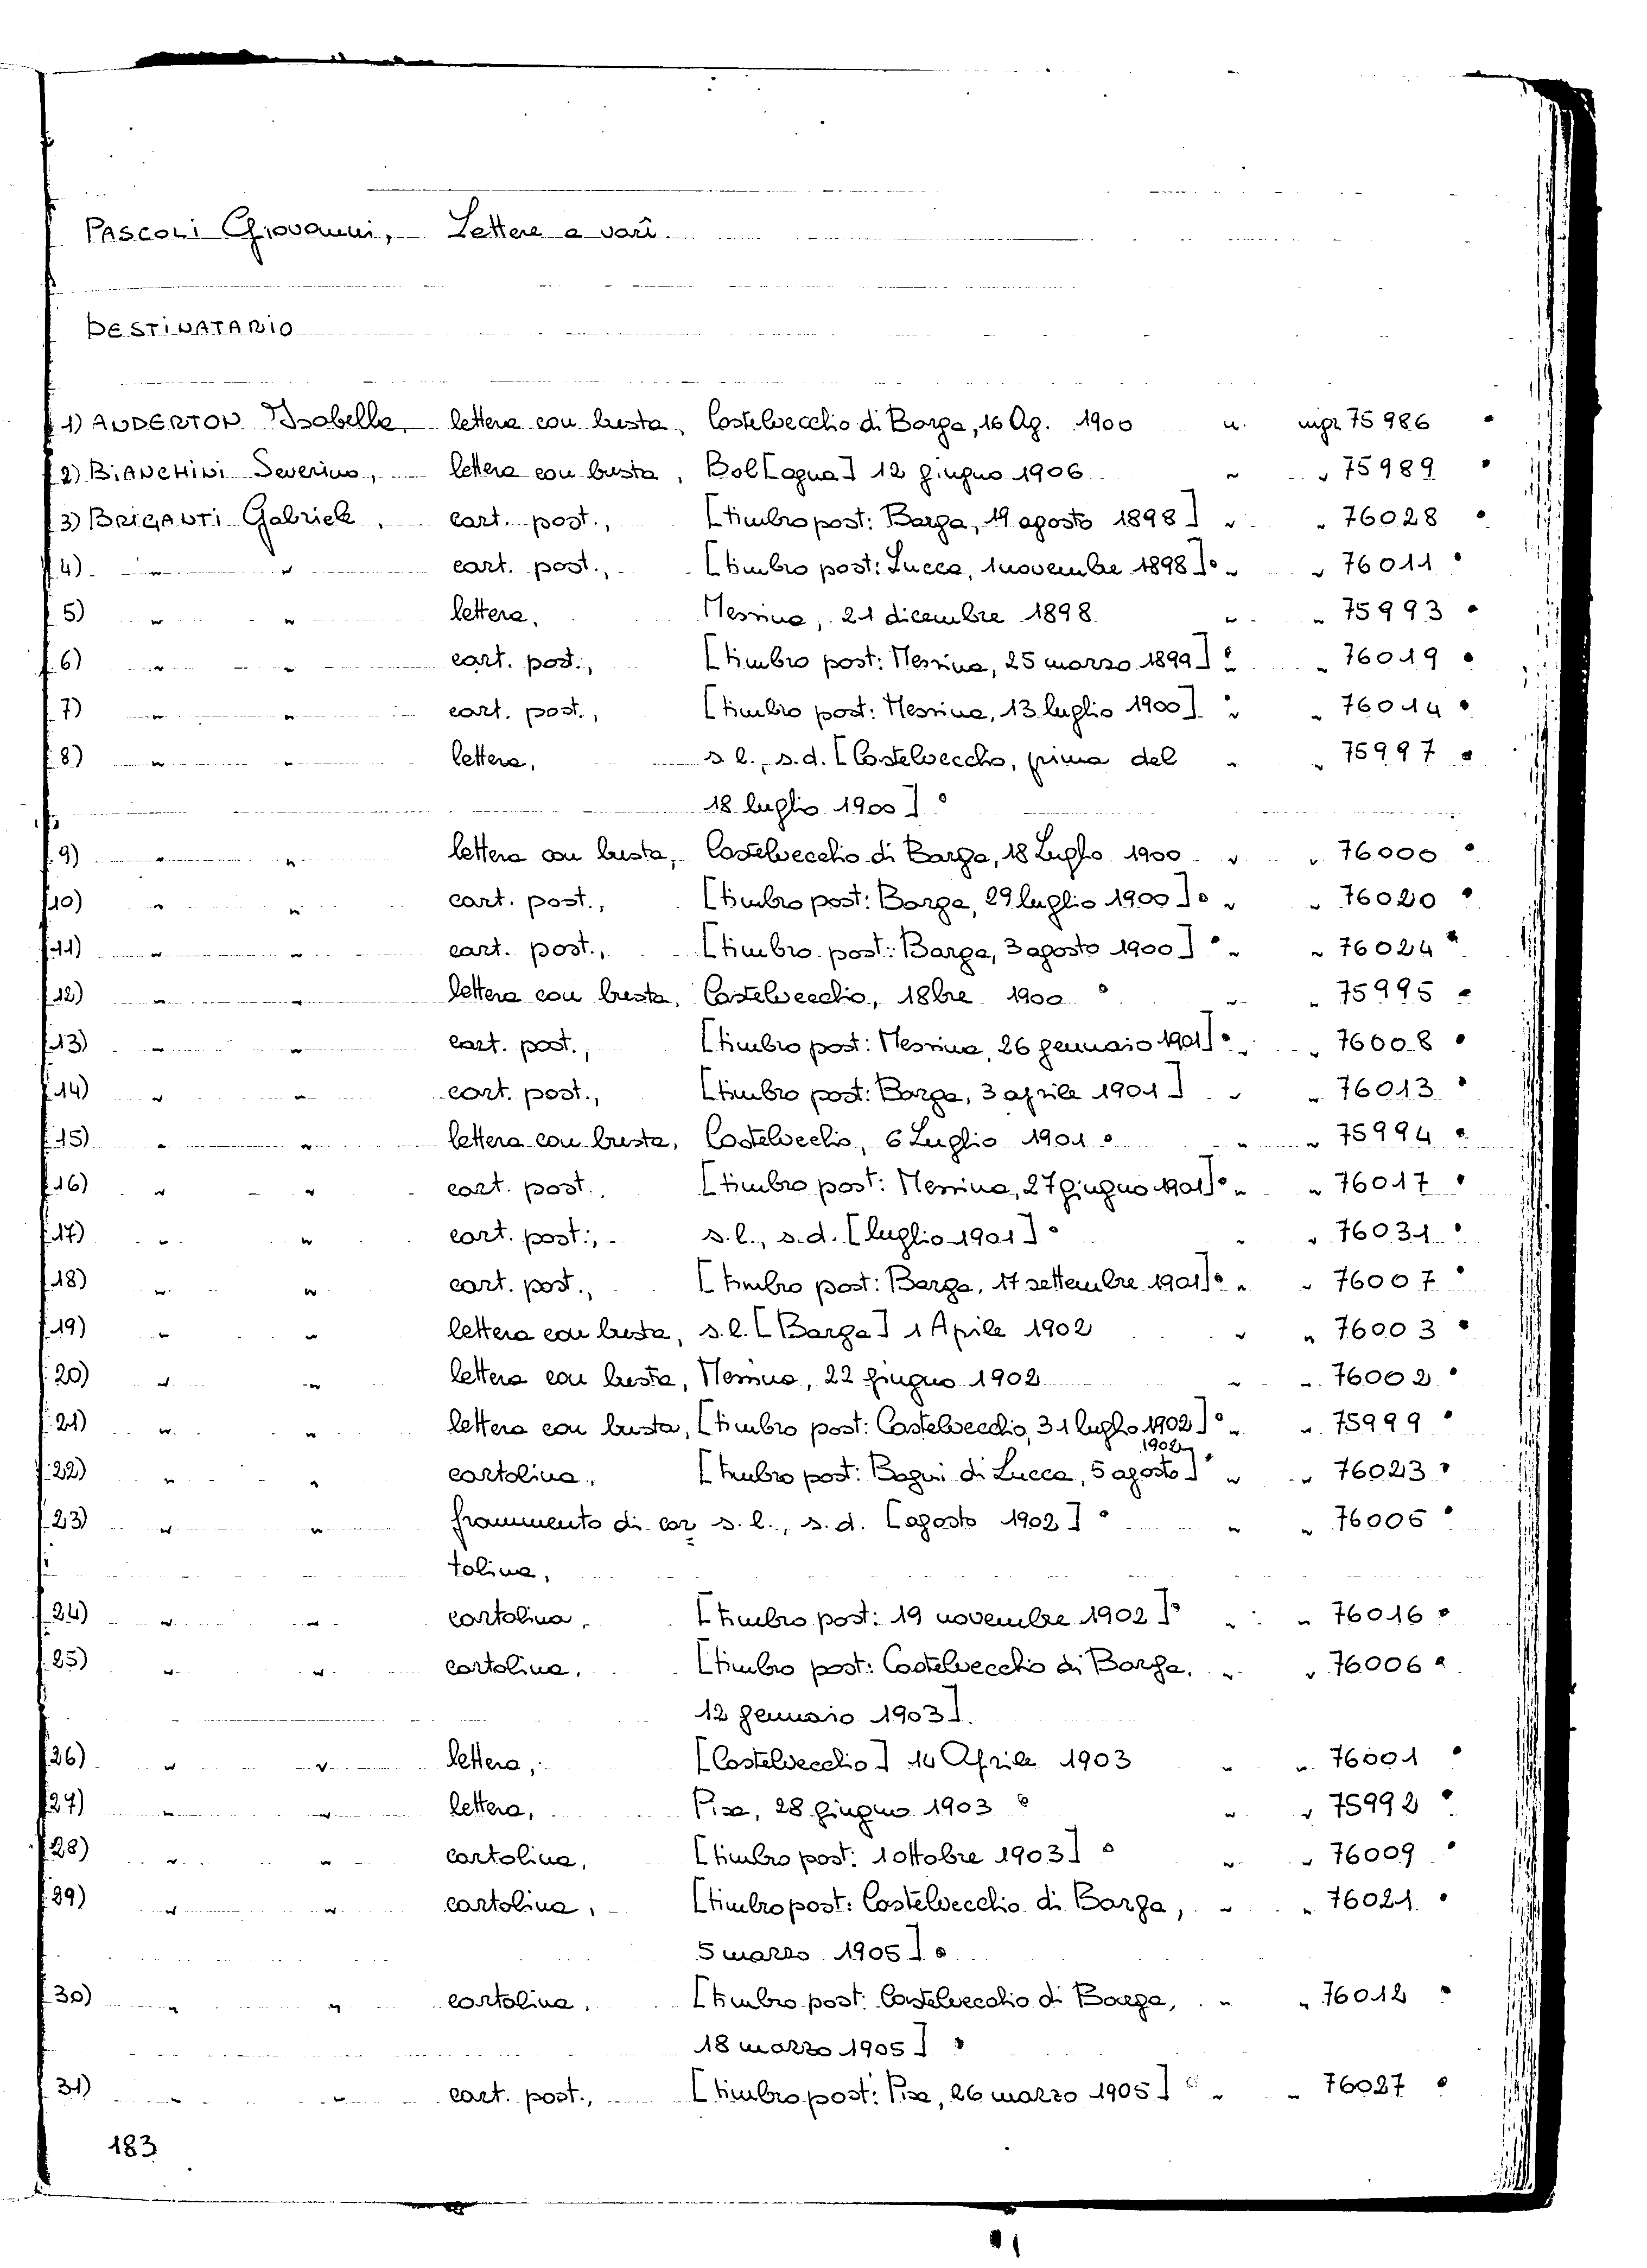 PASCOLI Giovanni, Lettere a varî.
DESTINATARIO
1) ANDERTON Isabella, lettera con busta, Castelvecchio di Barga, 16 Ag. 1900 n. ingr. 75986
2) BIANCHINI Severino, lettera con busta, Bol[ogna] 12 giugno 1906 " " 75989
3) BRIGANTI Gabriele, cart. post., [timbro post: Barga, 19 agosto 1898] " " 76028
4) " " cart. post., [timbro post: Lucca, 1 novembre 1898]° " " 76011
5) " " lettera, Messina, 21 dicembre 1898 " " 75993
6) " " cart. post., [timbro post: Messina, 25 marzo 1899]° " " 76019
7) " " cart. post., [timbro post: Messina, 13 luglio 1900]° " " 76014
8) " " lettera, s.l., s.d. [Castelvecchio, prima del " " 75997
18 luglio 1900]°
9) " " lettera con busta, Castelvecchio di Barga, 18 Luglio 1900 " " 76000
10) " " cart. post., [timbro post: Barga, 29 luglio 1900]° " " 76020
11) " " cart. post., [timbro post: Barga, 3 agosto 1900]° " " 76024
12) " " lettera con busta, Castelvecchio, 18bre 1900 ° " " 75995
13) " " cart. post., [timbro post: Messina, 26 gennaio 1901]° " " 76008
14) " " cart. post., [timbro post: Barga, 3 aprile 1901] " " 76013
15) " " lettera con busta, Castelvechio, 6 Luglio 1901 ° " " 75994
16) " " cart. post. [timbro post: Messina, 27 giugno 1901]° " " 76017
17) " " cart. post., s.l., s.d. [luglio 1901]° " " 76031
18) " " cart. post., [timbro post: Barga, 17 settembre 1901]° " " 76007
19) " " lettera con busta, s.l. [Barga] 1 Aprile 1902 " " 76003
20) " " lettera con busta, Messina, 22 giugno 1902 " " 76002
21) " " lettera con busta, [timbro post: Castelvecchio, 31 luglio 1902]° " " 75999
22) " " cartolina, [timbro post: Bagni di Lucca, 5 agosto 1902]° " " 76023
23) " " frammento di car= s.l., s.d. [agosto 1902]° " " 76005
tolina,
24) " " cartolina, [timbro post: 19 novembre 1902]° " " 76016
25) " " cartolina, [timbro post: Castelvecchio di Barga, " " 76006
12 gennaio 1903].
26) " " lettera, [Castelvecchio] 14 Aprile 1903 " " 76001
27) " " lettera, Pisa, 28 giugno 1903 ° " " 75992
28) " " cartolina, [timbro post: 1 ottobre 1903]° " " 76009
29) " " cartolina, [timbro post: Castelvecchio di Barga, " " 76021
5 marzo 1905]°
30) " " cartolina, [timbro post: Castelvecchio di Barga, " " 76012
18 marzo 1905]°
31) " " cart. post., [timbro post: Pisa, 26 marzo 1905]° " " 76027
183